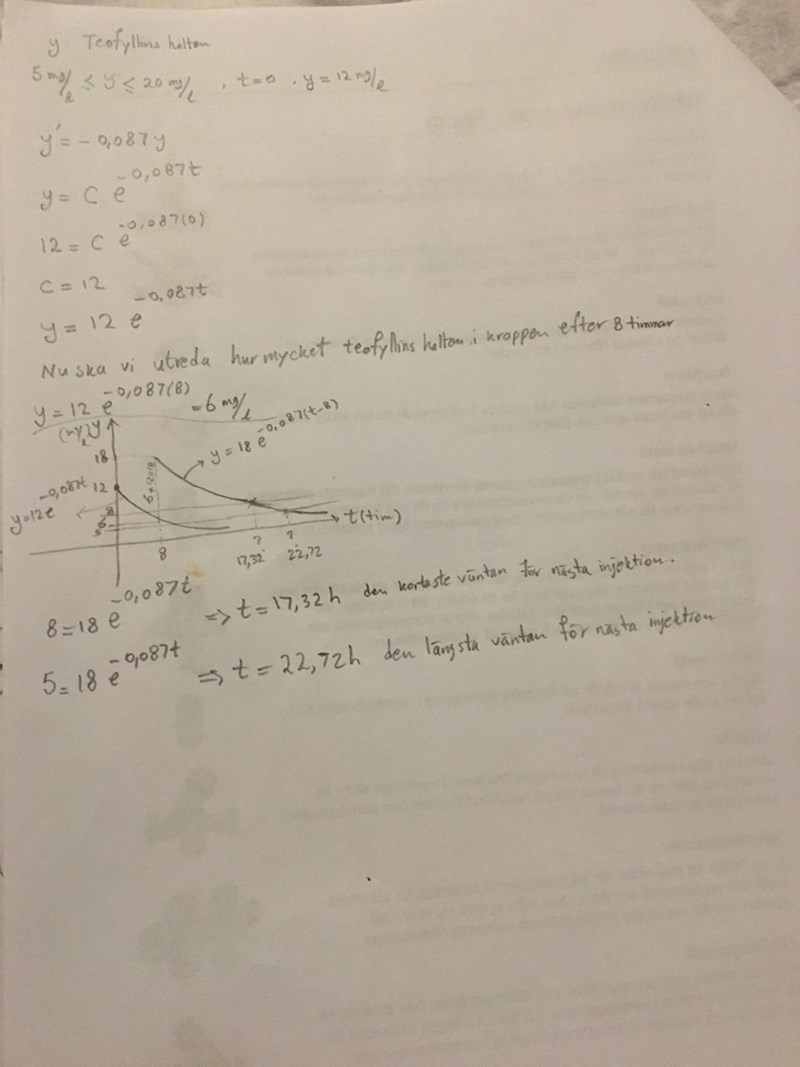 y Teofyllins halten
5 mg/l ≤ y ≤ 20 mg/l , t=0 . y = 12 mg/l
y' = -0,087y
y = C e^-0,087t
12 = C e^-0,087(0)
C = 12
y = 12 e^-0,087t
Nu ska vi utreda hur mycket teofyllins halten i kroppen efter 8 timmar
y = 12 e^-0,087(8) = 6 mg/l
(mg/l) y
18
y = 18 e^-0,087(t-8)
12
6+12=18
y=12e^-0,087t
8
6
5
t (tim)
8
? ?
17,32 22,72
8 = 18 e^-0,087t => t = 17,32 h den kortaste väntan för nästa injektion.
5 = 18 e^-0,087t => t = 22,72 h den längsta väntan för nästa injektion